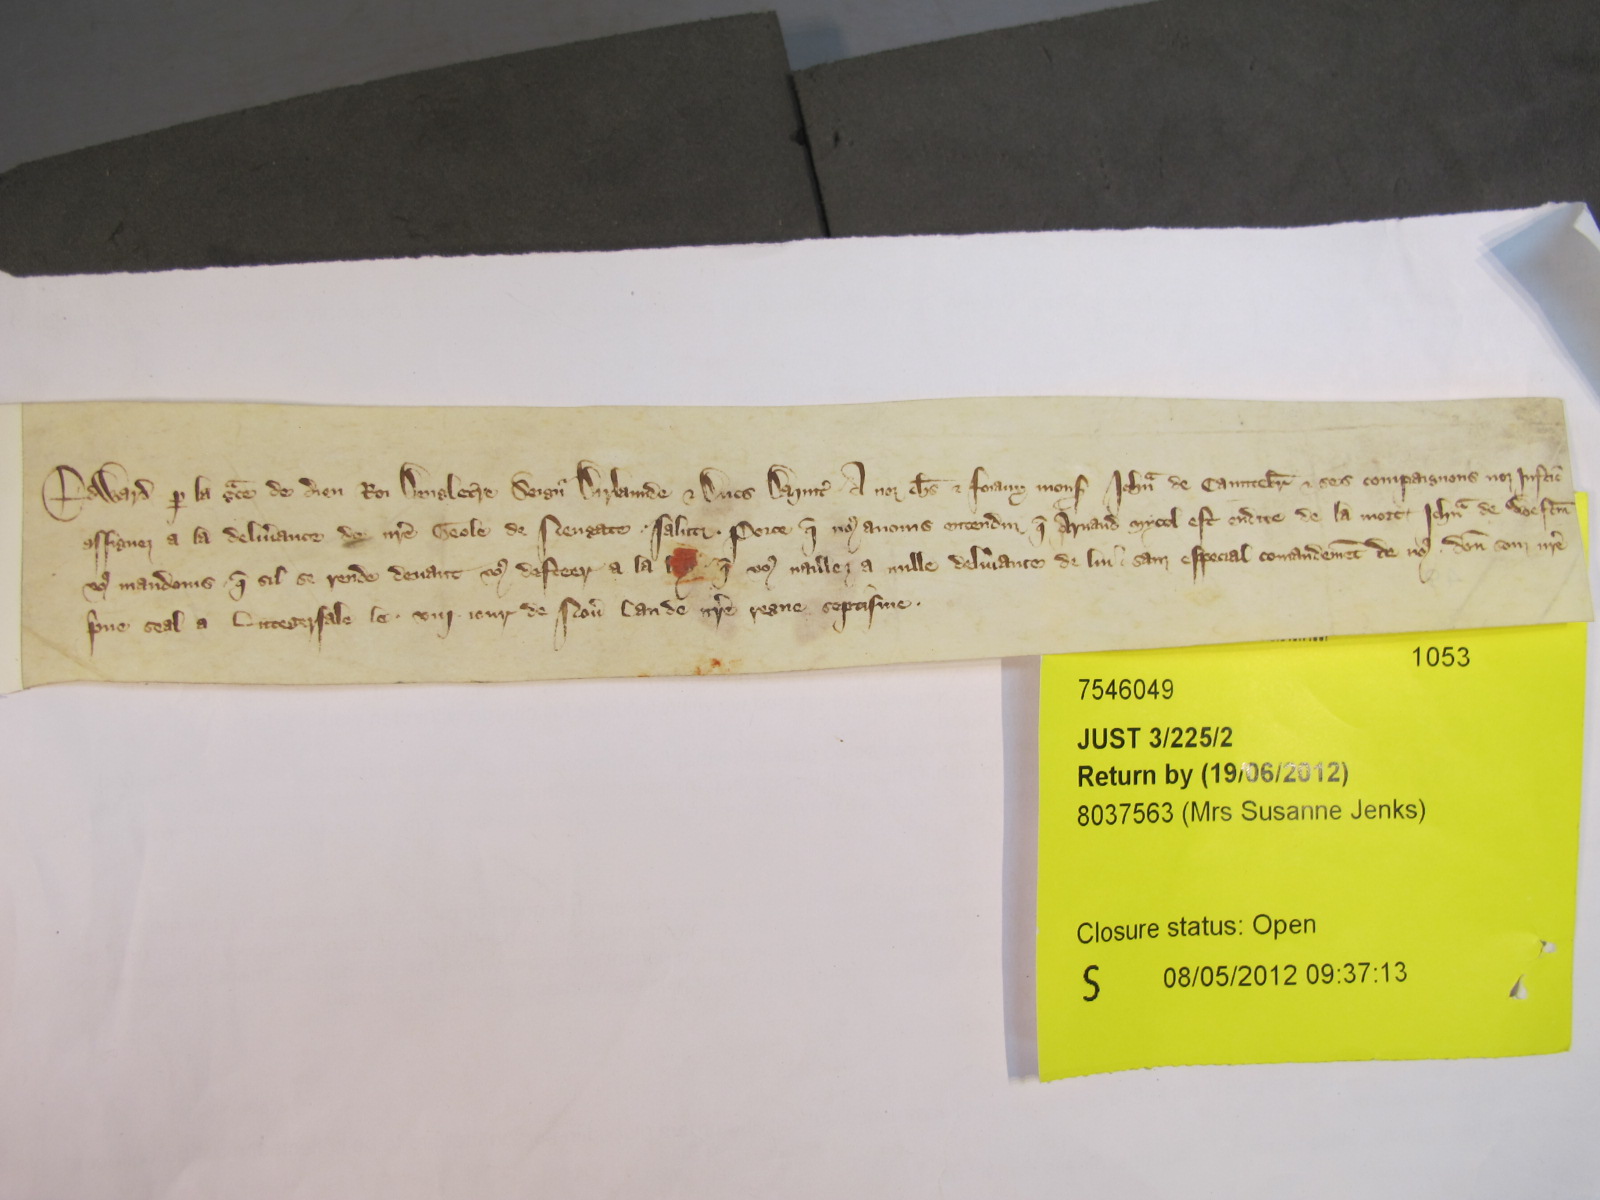 Edward p la gce de dieu Roi Dengleterre Seignr Dirlaunde & Ducs Daquit A noz chs & foiaux mons Johan de Cauntebr & ses compaignons noz Justic
assignez a la delivance de nre Geole de Neugate saluz. Porce q nos avoms entendu q Arnaud Mycol est endite de la mort Johan de Westm
vos mandoms q sil se rende devant vos desteer a la q vos naillez a nulle delivance de lui sanz especial comandemet de nos. Don souz nre
prive seal a le viij jour de Nov lan de nre regne septisme.
1053
7546049
JUST 3/225/2
Return by (19/06/2012)
8037563 (Mrs Susanne Jenks)
Closure status: Open
S 08/05/2012 09:37:13